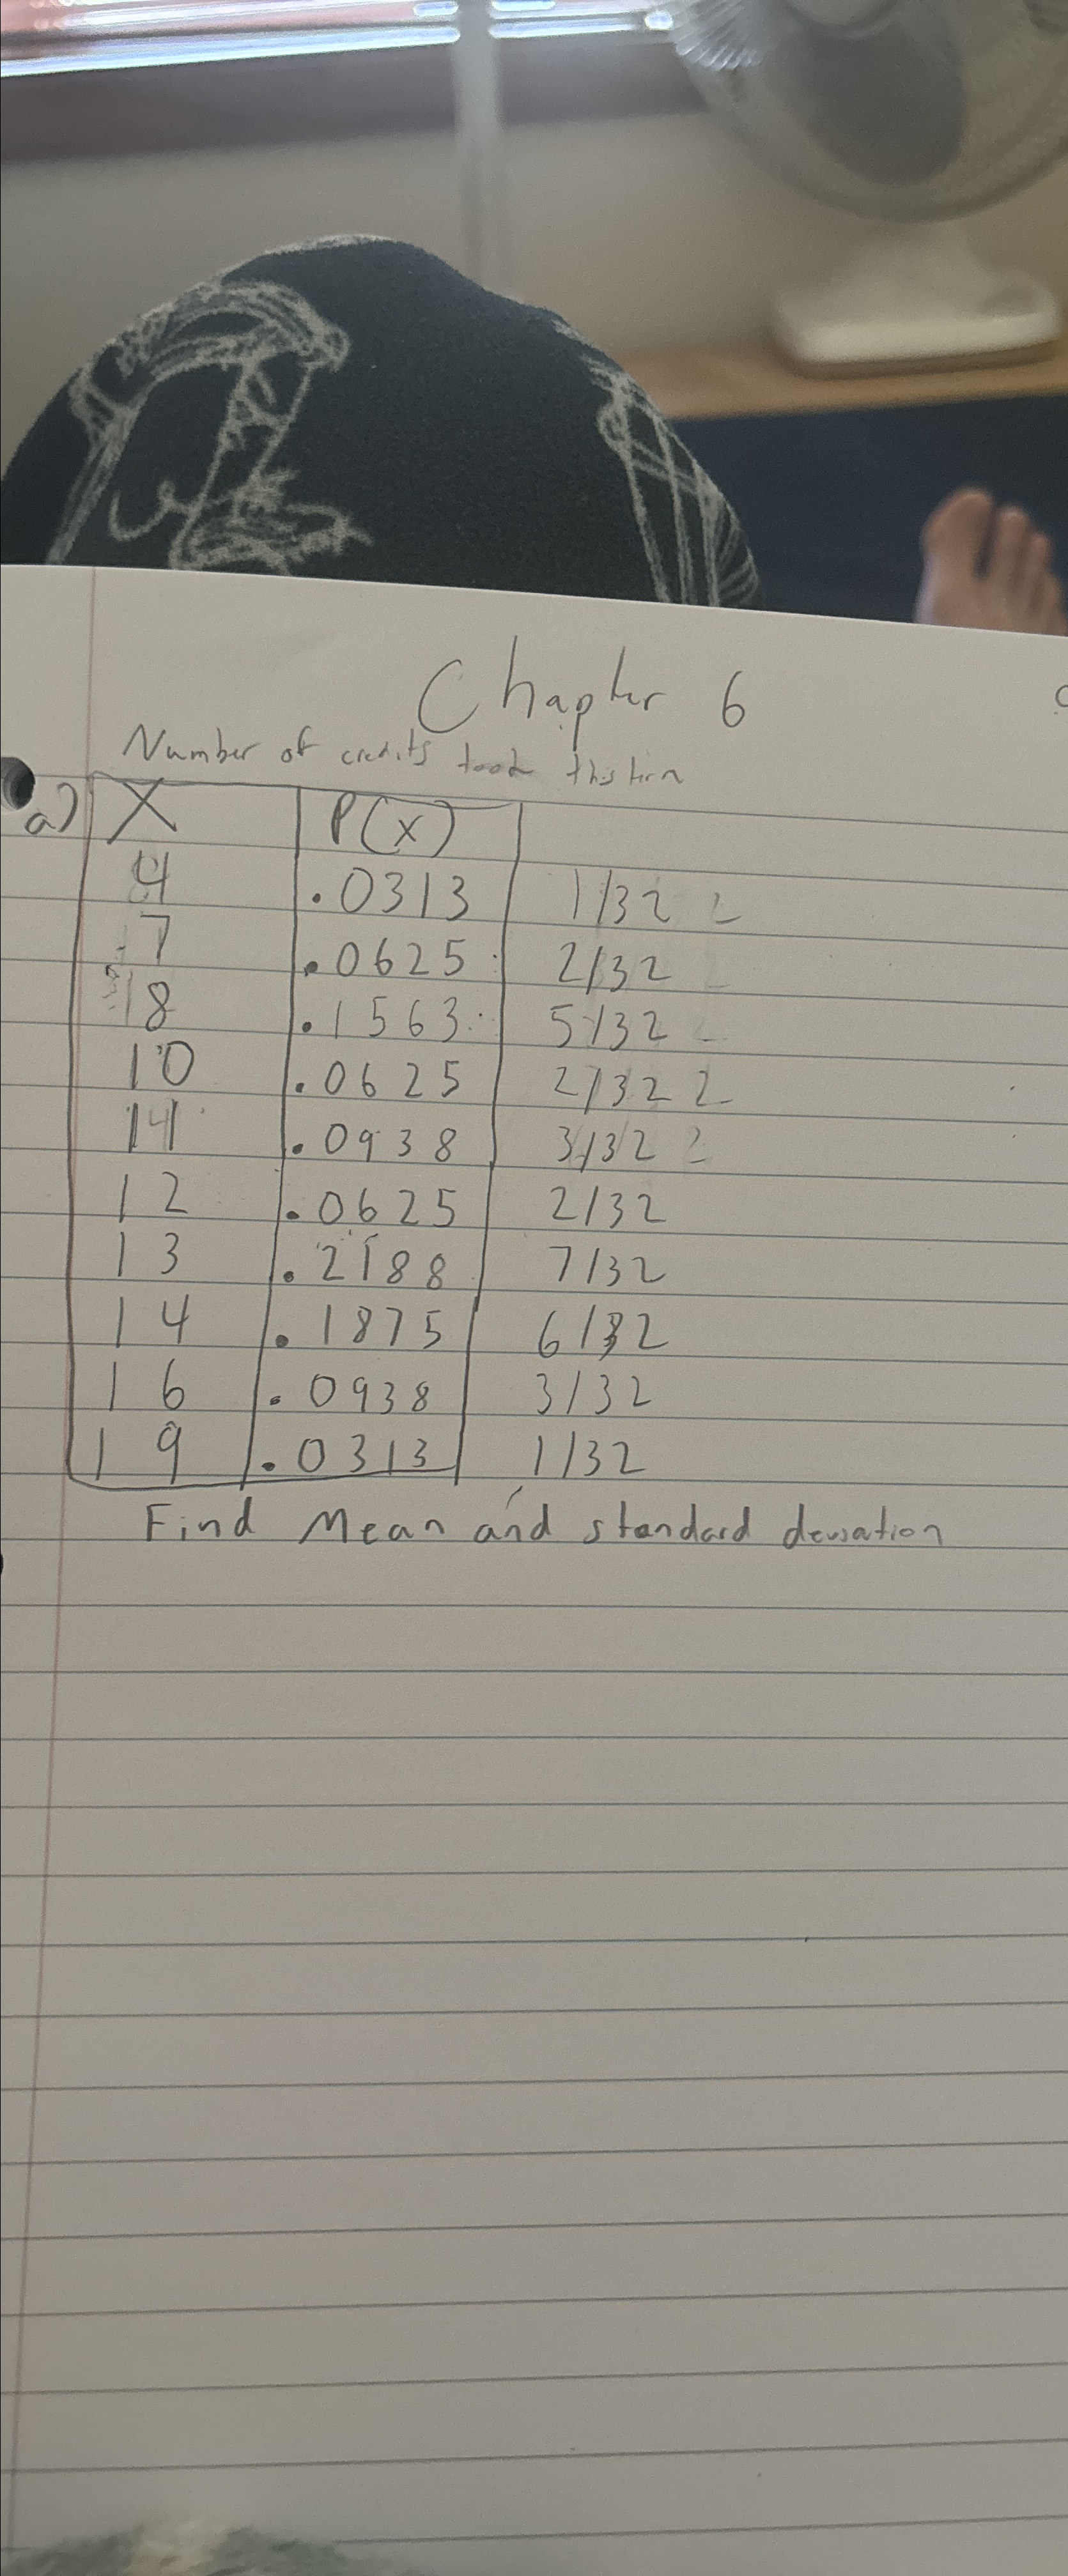 Chapter 6
Number of credits took this term
a) X P(x)
4 .0313 1/32 2
7 .0625 2/32
8 .1563 5/32
10 .0625 2/32 2
11 .0938 3/32 2
12 .0625 2/32
13 .2188 7/32
14 .1875 6/32
16 .0938 3/32
19 .0313 1/32
Find Mean and standard deviation